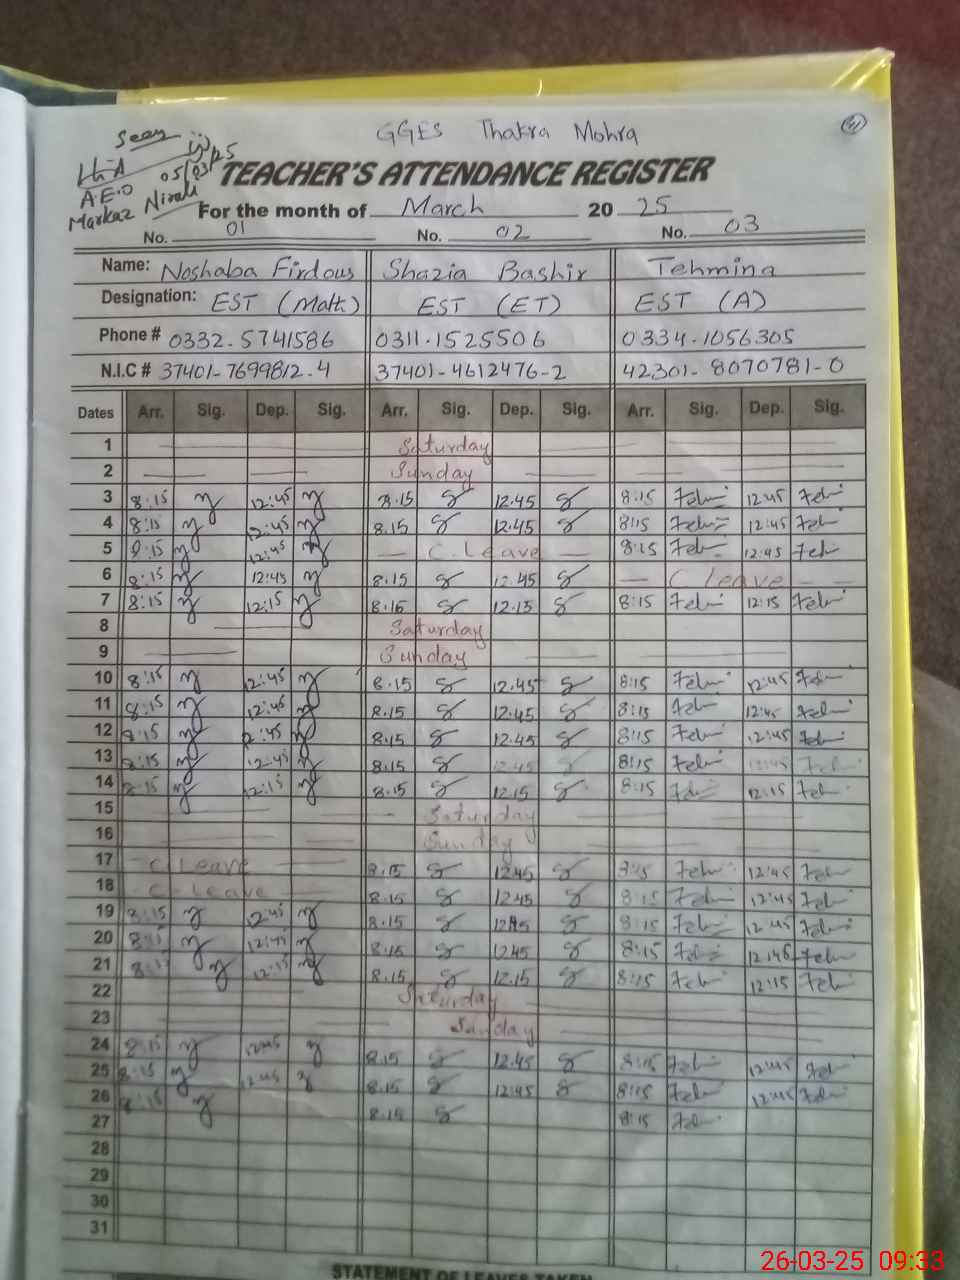 Seen
05/03/25
A.E.O
Markaz Nirali
GGES Thakra Mohra
TEACHER'S ATTENDANCE REGISTER
For the month of March 2025
No. 01 No. 02 No. 03
Name: Noshaba Firdous Shazia Bashir Tehmina
Designation: EST (Math) EST (ET) EST (A)
Phone # 0332.5741586 0311.1525506 0334.1056305
N.I.C # 37401-7699812-4 37401-4612476-2 42301-8070781-0
Dates Arr. Sig. Dep. Sig. Arr. Sig. Dep. Sig. Arr. Sig. Dep. Sig.
1 Saturday
2 Sunday
3 8:15 12:45 8.15 12.45 8:15 12:45
4 8:15 12:45 8.15 12.45 8:15 12:45
5 8:15 12:45 C.Leave 8:15 12:45
6 8:15 12:45 8.15 12.45 C Leave
7 8:15 12:15 8.15 12.15 8:15 12:15
8 Saturday
9 Sunday
10 8:15 12:45 8.15 12.45 8:15 12:45
11 8:15 12:45 8.15 12.45 8:15 12:45
12 8:15 12:45 8.15 12.45 8:15 12:45
13 8:15 12:45 8.15 12.45 8:15 12:45
14 8:15 12:15 8.15 12.15 8:15 12:15
15 Saturday
16 Sunday
17 C Leave 8.15 12.45 8:15 12:45
18 C. Leave 8.15 12.45 8:15 12:45
19 8:15 12:45 8.15 12.45 8:15 12:45
20 8:15 12:45 8.15 12.45 8:15 12:45
21 8:15 12:15 8.15 12.15 8:15 12:15
22 Saturday
23 Sunday
24 8:15 12:45 8.15 12.45 8:15 12:45
25 8:15 12:45 8.15 12.45 8:15 12:45
26 8:15 8.15 8:15
27
28
29
30
31
STATEMENT OF LEAVES TAKEN
26-03-25 09:33